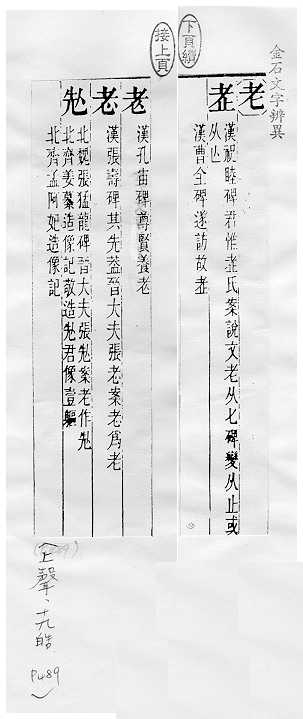 金石文字辨異
下頁續
老
漢祝睦碑君惟氏案說文老从七碑變从止或
从
漢曹全碑遂訪故
接上頁
老
漢孔宙碑尊賢養老
老
漢張壽碑其先蓋晉大夫張老案老爲老
北魏張猛龍碑晉大夫張案老作
北齊姜纂造像記敬造君像壹軀
北齊孟阿妃造像記
(上聲、十九皓
P489)